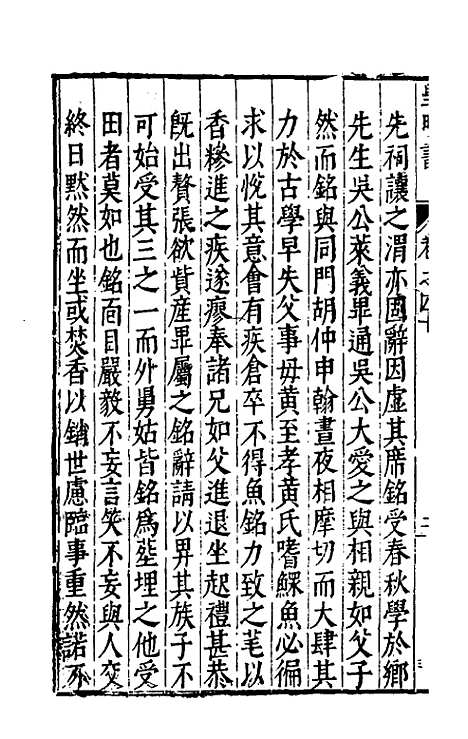 皇明書 卷之四十
先祠讓之渭亦固辭因虛其席銘受春秋學於鄉
先生吳公萊義畢通吳公大愛之與相親如父子
然而銘與同門胡仲申翰晝夜相摩切而大肆其
力於古學早失父事毋黄至孝黄氏嗜鰥魚必徧
求以悅其意會有疾倉卒不得魚銘力致之芼以
香糝進之疾遂瘳奉諸兄如父進退坐起禮甚恭
既出贅張欲貲産畢屬之銘辭請以畀其族子不
可始受其三之一而外舅姑皆銘爲塟埋之他受
田者莫如也銘面目嚴毅不妄言笑不妄與人交
終日默然而坐或焚香以銷世慮臨事重然諾不